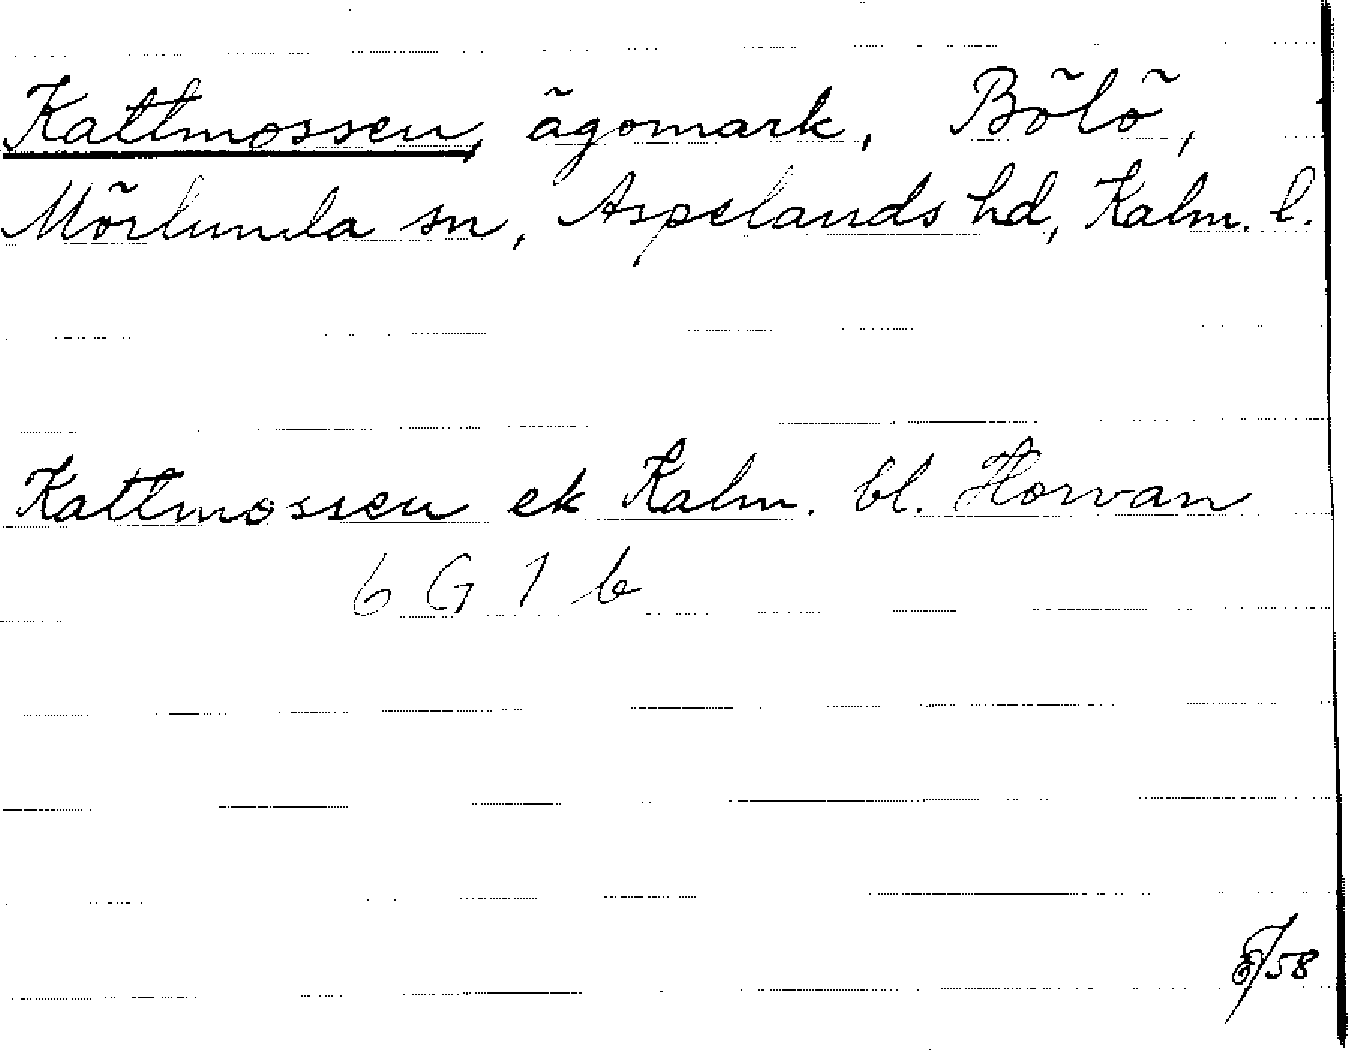 Kattmossen, ägomark, Bölö,
Mörlunda sn, Aspelands hd, Kalm. l.
Kattmossen ek Kalm. bl. Horvan
6 G 1 b
/58